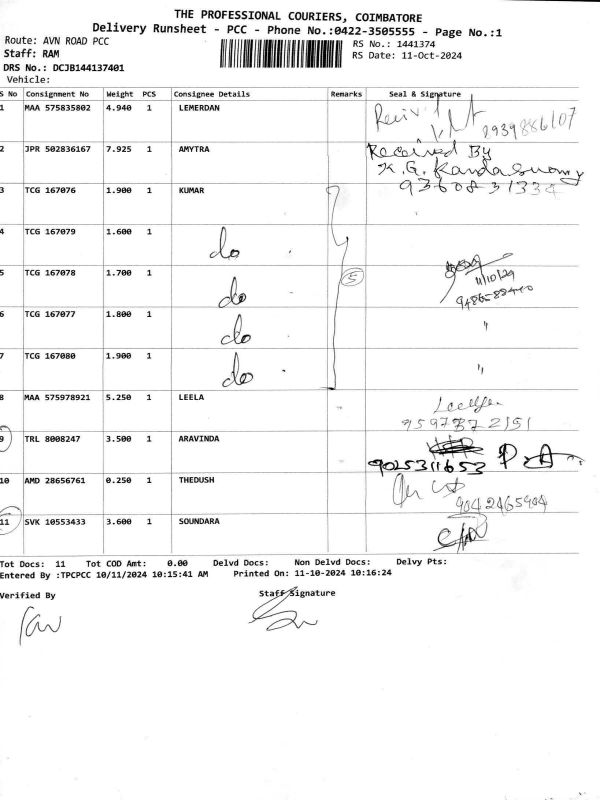 THE PROFESSIONAL COURIERS, COIMBATORE
Delivery Runsheet - PCC - Phone No.:0422-3505555 - Page No.:1
Route: AVN ROAD PCC
RS No.: 1441374
Staff: RAM
RS Date: 11-Oct-2024
DRS No.: DCJB144137401
Vehicle:
S No Consignment No Weight PCS Consignee Details Remarks Seal & Signature
1 MAA 575835802 4.940 1 LEMERDAN
2 JPR 502836167 7.925 1 AMYTRA Received By
K. G. Kandaswamy
9360831334
3 TCG 167076 1.900 1 KUMAR
4 TCG 167079 1.600 1 do
5 TCG 167078 1.700 1 do 5 11/10/24
6 TCG 167077 1.800 1 do "
7 TCG 167080 1.900 1 do "
8 MAA 575978921 5.250 1 LEELA
9597872151
9 TRL 8008247 3.500 1 ARAVINDA
9025311653
10 AMD 28656761 0.250 1 THEDUSH
9042465904
11 SVK 10553433 3.600 1 SOUNDARA
Tot Docs: 11 Tot COD Amt: 0.00 Delvd Docs: Non Delvd Docs: Delvy Pts:
Entered By :TPCPCC 10/11/2024 10:15:41 AM Printed On: 11-10-2024 10:16:24
Verified By Staff Signature